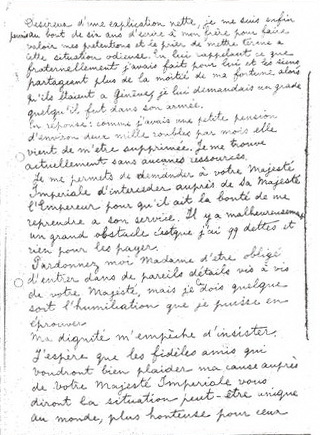 Desireux d'une explication nette, je me suis enfin
au bout de six ans d'ecrire à mon frère pour faire
valoir mes pretentions et le prier de mettre terme a
cette situation odieuse. En lui rappelant ce que
fraternellement j'avais fait pour lui et les siens
partageant plus de la moitié de ma fortune alors
qu'ils étaient a Genêve, je lui demandais un grade
quelqu'il fut dans son armée.
En réponse: comme j'avais une petite pension
d'environ deux mille roubles par mois elle
vient de m'être supprimée. Je me trouve
actuellement sans aucunes ressources.
Je me permets de demander à votre Majesté
Impériale d'interceder auprès de Sa Majesté
l'Empereur pour qu'il ait la bonté de me
reprendre a son service. Il y a malheureusement
un grand obstacle c'est que j'ai 99 dettes et
rien pour les payer.
Pardonnez moi Madame d'etre obligé
d'entrer dans de pareils détails vis à vis
de votre Majesté, mais je dois quelque
soit l'humiliation que je puisse en
éprouver
Ma dignité m'empêche d'insister.
J'espère que les fidèles amis qui
voudront bien plaider ma cause auprès
de votre Majesté Imperiale vous
diront la situation peut-être unique
au monde, plus honteuse pour ceux